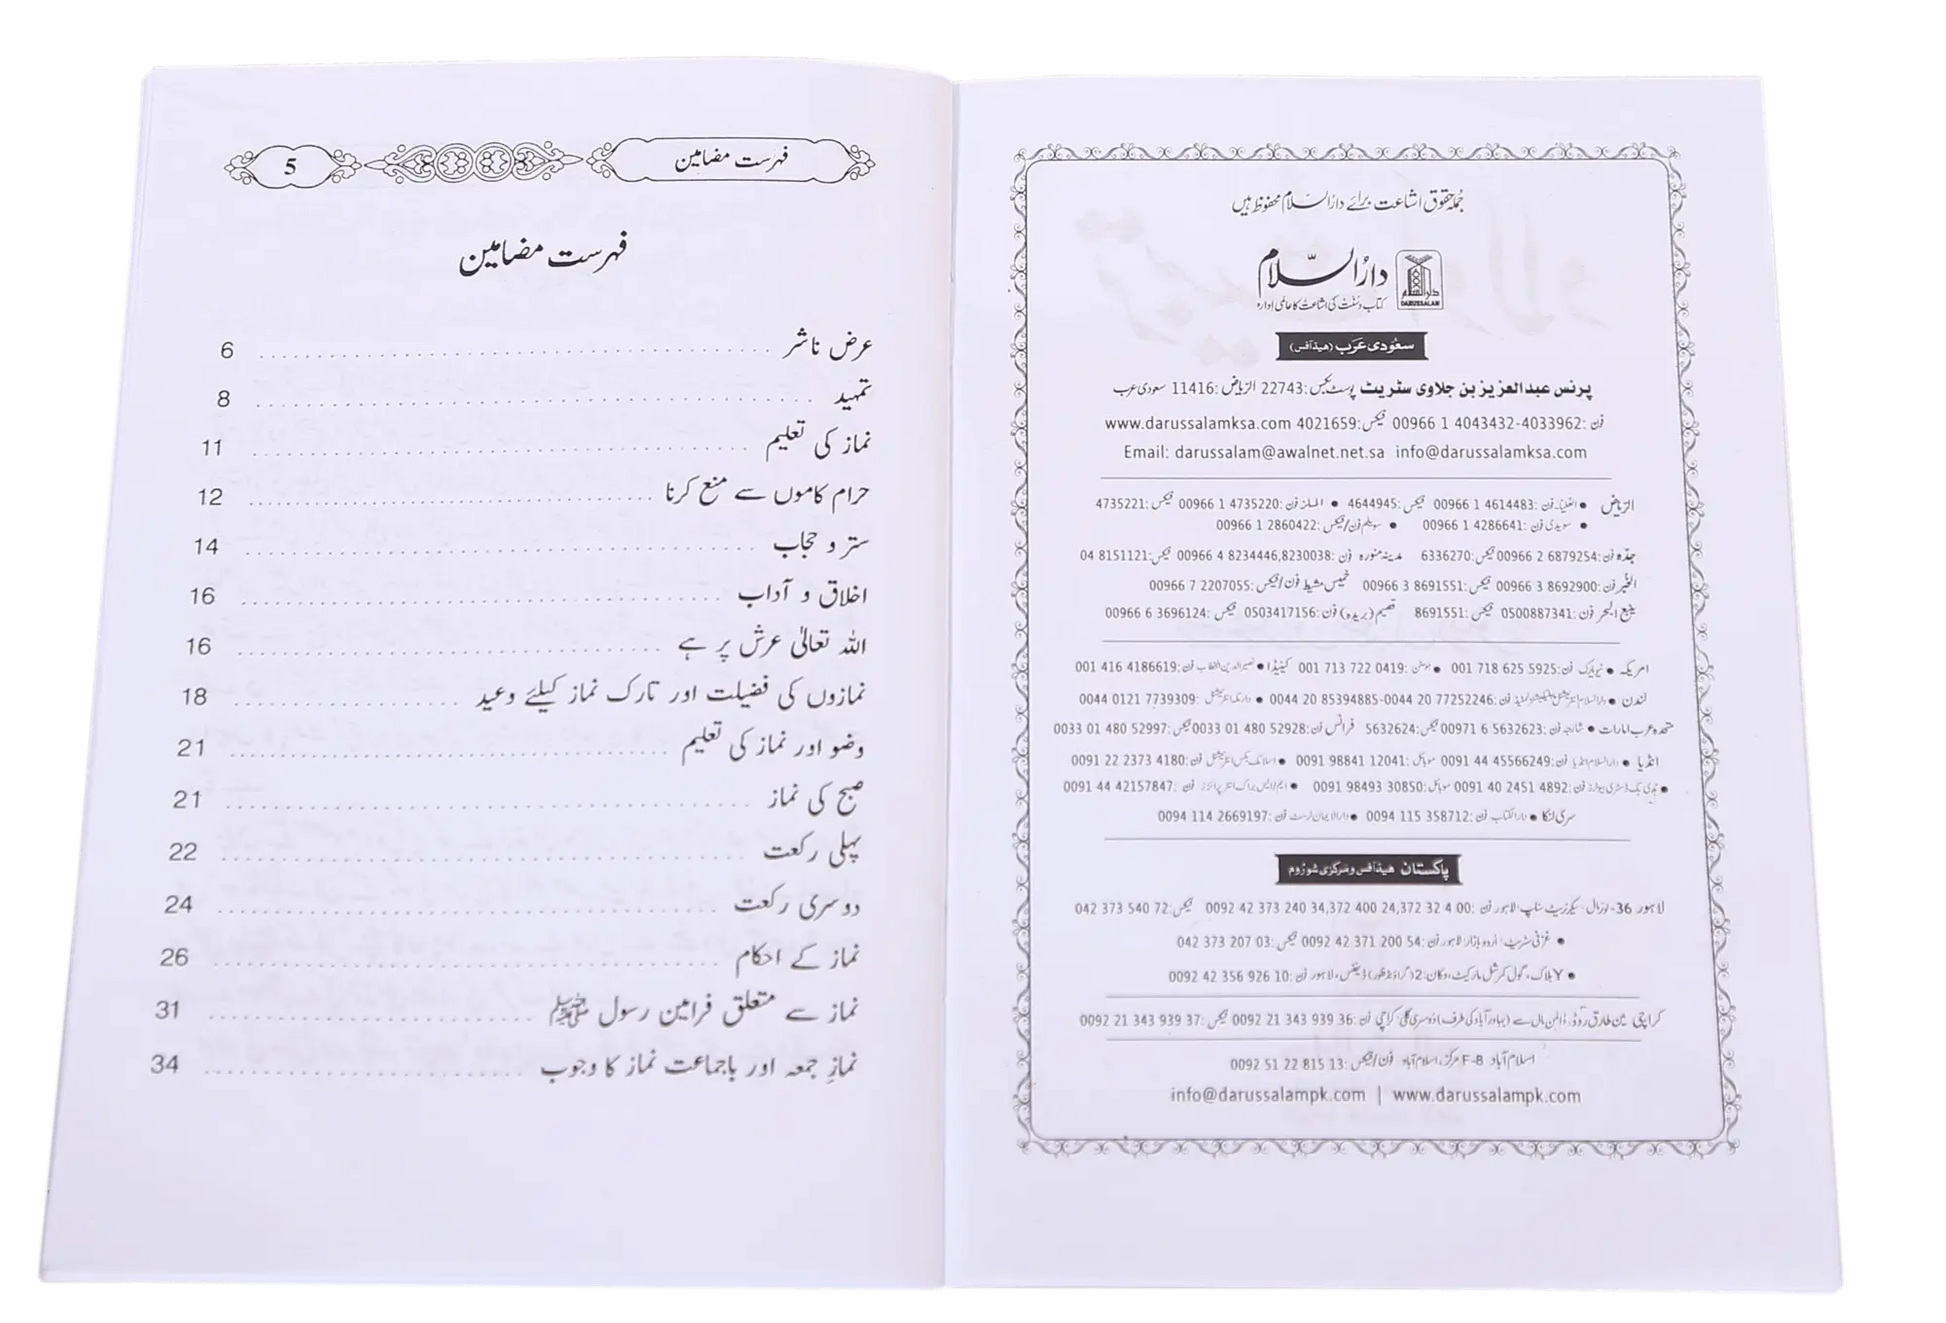 جُملہ حقوق اشاعت برائے دارُالسّلام محفوظ ہیں
دارُالسّلام
دارالسلام
DARUSSALAM
کتاب و سُنّت کی اشاعت کا عالمی ادارہ
سعُودی عَرَب (ھیڈآفس)
پرنس عبدالعزیز بن جلاوی سٹریٹ پوسٹ بکس: 22743 الریاض: 11416 سعودی عرب
فون: 00966 1 4043432-4033962 فیکس: 4021659 www.darussalamksa.com
Email: darussalam@awalnet.net.sa info@darussalamksa.com
الریاض • العُلیا۔ فون: 00966 1 4614483 فیکس: 4644945 • الملز فون: 00966 1 4735220 فیکس: 4735221
• سویدی فون: 00966 1 4286641 • سویلم فون/فیکس: 00966 1 2860422
جدّہ فون: 00966 2 6879254 فیکس: 6336270 مدینہ منورہ فون: 00966 4 8234446,8230038 فیکس: 04 8151121
الخُبر فون: 00966 3 8692900 فیکس: 00966 3 8691551 خمیس مشیط فون/فیکس: 00966 7 2207055
ینبع البحر فون: 0500887341 فیکس: 8691551 قصیم (بریدہ) فون: 0503417156 فیکس: 00966 6 3696124
امریکہ • نیویارک فون: 001 718 625 5925 • ہوسٹن: 001 713 722 0419 کینیڈا • نصیرالدین الخطاب فون: 001 416 4186619
لندن • دارالسلام انٹرنیشنل پبلیکیشنز لمیٹڈ فون: 0044 20 77252246-0044 20 85394885 • دارمکہ انٹرنیشنل: 0044 0121 7739309
متحدہ عرب امارات • شارجہ فون: 00971 6 5632623 فیکس: 5632624 فرانس فون: 0033 01 480 52928 فیکس: 0033 01 480 52997
انڈیا • دارالسلام انڈیا فون: 0091 44 45566249 موبائل: 0091 98841 12041 • اسلامک بکس انٹرنیشنل فون: 0091 22 2373 4180
• ہُدیٰ بک ڈسٹری بیوٹرز فون: 0091 40 2451 4892 موبائل: 0091 98493 30850 • ایم ایس براک انٹرپرائزز فون: 0091 44 42157847
سری لنکا • دارالکتاب فون: 0094 115 358712 • دارالایمان ٹرسٹ فون: 0094 114 2669197
پاکستان ھیڈآفس و مَرکزی شورُوم
لاہور 36- لوئرمال، سیکرٹریٹ سٹاپ، لاہور فون: 0092 42 373 240 34,372 400 24,372 32 4 00 فیکس: 042 373 540 72
• غزنی سٹریٹ، اُردو بازار، لاہور فون: 0092 42 371 200 54 فیکس: 042 373 207 03
• Y بلاک، گول کمرشل مارکیٹ، دکان: 2 (گراؤنڈفلور) ڈیفنس، لاہور فون: 0092 42 356 926 10
کراچی مین طارق روڈ، ڈالمن مال سے (بہادرآباد کی طرف) دُوسری گلی کراچی فون: 0092 21 343 939 36 فیکس: 0092 21 343 939 37
اسلام آباد F-8 مرکز، اسلام آباد فون/فیکس: 0092 51 22 815 13
info@darussalampk.com | www.darussalampk.com
فہرست مضامین 5
فہرست مضامین
عرض ناشر 6
تمہید 8
نماز کی تعلیم 11
حرام کاموں سے منع کرنا 12
ستر و حجاب 14
اخلاق و آداب 16
اللہ تعالیٰ عرش پر ہے 16
نمازوں کی فضیلت اور تارک نماز کیلئے وعید 18
وضو اور نماز کی تعلیم 21
صبح کی نماز 21
پہلی رکعت 22
دوسری رکعت 24
نماز کے احکام 26
نماز سے متعلق فرامین رسول ﷺ 31
نمازِ جمعہ اور باجماعت نماز کا وجوب 34